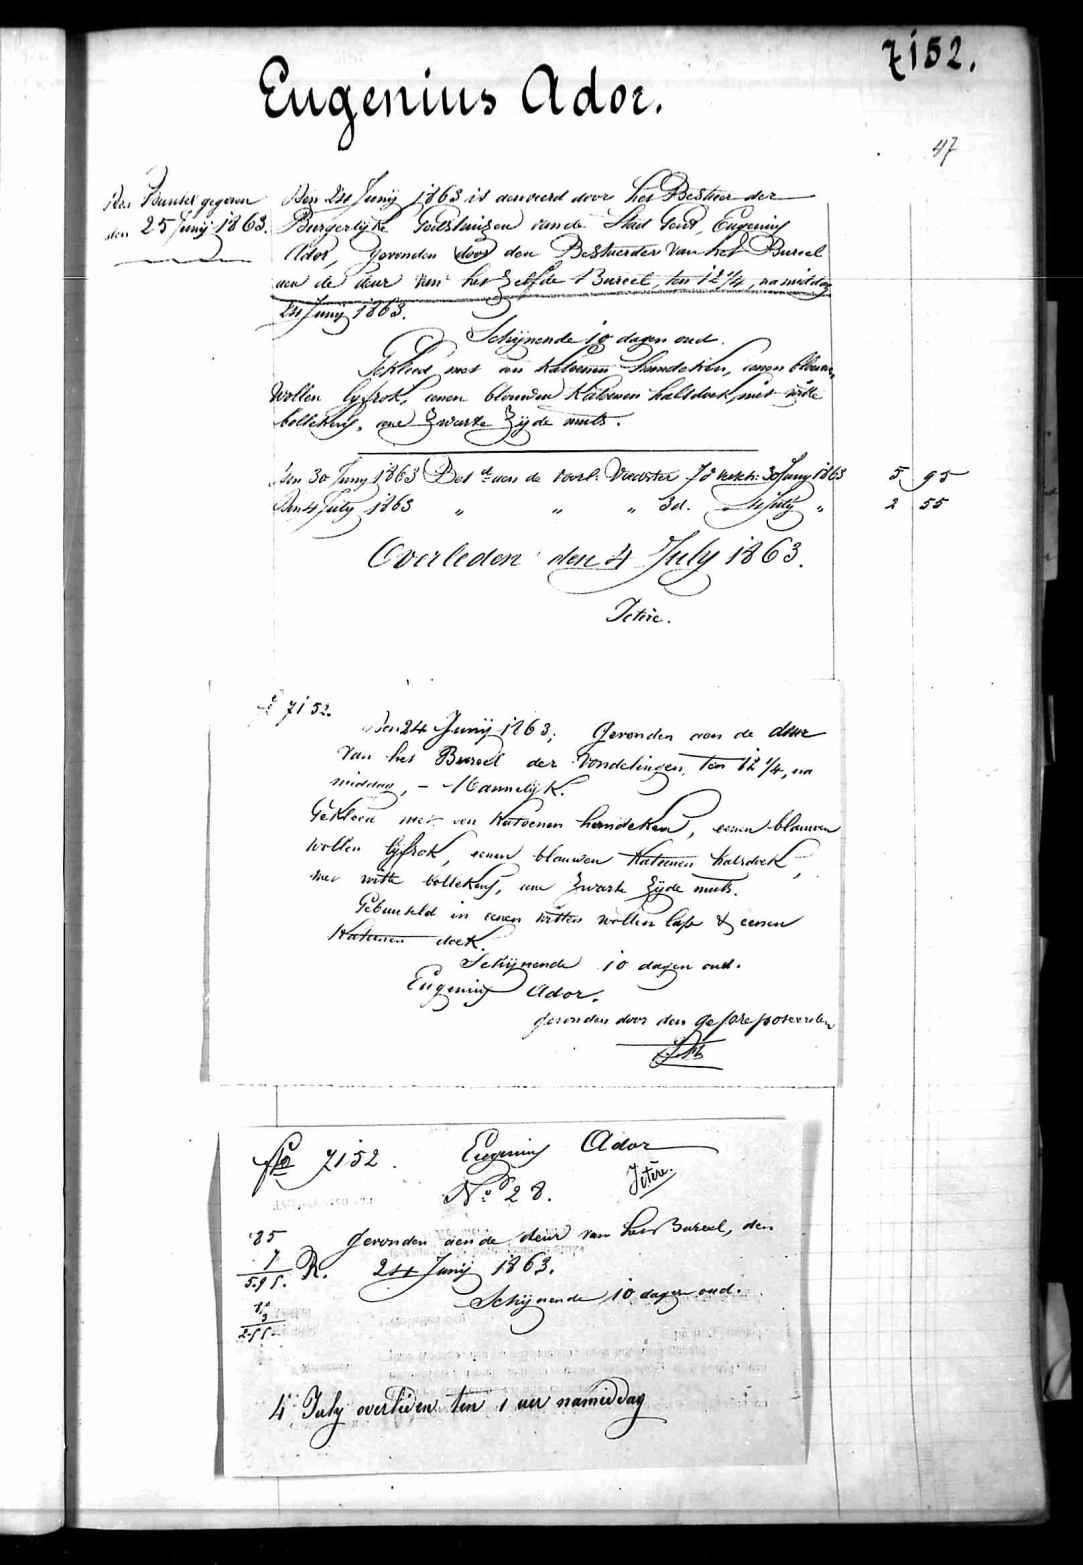 7152.
Eugenius Ador.
47
Den Bundel gegeven
den 25 Junij 1863.
Den 24 Junij 1863 is aenveerd door het Bestier der
Burgerlijke Godshuizen van de Stad Gent, Eugenius
Ador, gevonden door den Bestierder van het Bureel
aen de deur van het zelfde Bureel, ten 12 1/4, namiddag
24 Junij 1863.
Schijnende 10 dagen oud.
Gekleed met een katoenen hemdeken, eenen blauwen
wollen lijfrok, eenen blauwen katoenen halsdoek, met witte
bollekens, eene zwarte zijde muts.
Den 30 Juny 1863 Bet. aen de voorl. Voedster 7 d 30 Juny 1863 5 95
Den 4 July 1863 " " " 3 d. 4 July " 2 55
Overleden den 4 July 1863.
Icterie.
Fo 7152.
Den 24 Junij 1863; Gevonden aan de deur
van het Bureel der Vondelingen, ten 12 1/4, na
middag, - Mannelijk.
Gekleed met een katoenen hemdeken, eenen blauwen
wollen lijfrok, eenen blauwen katoenen halsdoek,
met witte bollekens, eene zwarte zijde muts.
Gebunseld in eenen witten wollen lap & eenen
katoenen doek.
Schijnende 10 dagen oud.
Eugenius Ador.
gevonden door den geprepposeerden
Fo 7152. Eugenius Ador
No 28. Ictère.
85 gevonden aen de deur van het Bureel, den
7
5.95. R. 24 Junij 1863.
Schijnende 10 dagen oud.
3
2.55
4 July overleden ten 1 uer namiddag